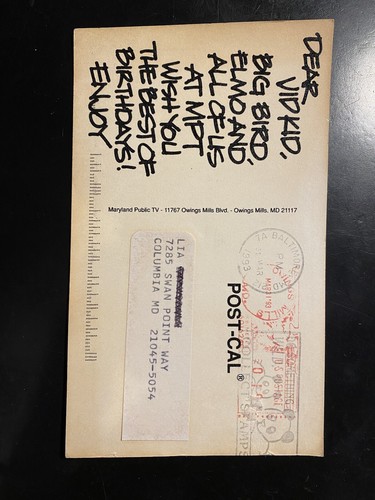 DEAR
VIDKID,
BIG BIRD,
ELMO AND,
ALL OF US
AT MPT
WISH YOU
THE BEST OF
BIRTHDAYS!
ENJOY
Maryland Public TV - 11767 Owings Mills Blvd. - Owings Mills, MD 21117
LIA
7285 SWAN POINT WAY
COLUMBIA MD 21045-5054
POST-CAL®
BALTIMORE
1993
COLLECT STAMPS